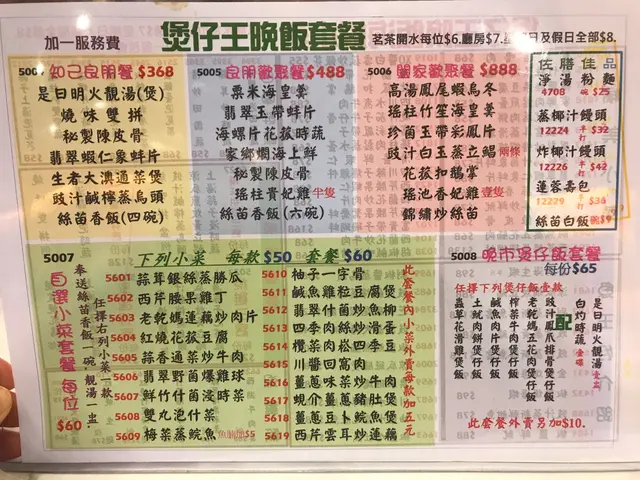 加一服務費
煲仔王晚飯套餐
茗茶開水每位$6.廳房$7.星期日及假日全部$8.
知己良朋餐 $368
是日明火靚湯(煲)
燒味雙拼
秘製陳皮骨
翡翠蝦仁象蚌片
生老大澳通菜煲
豉汁鹹檸蒸烏頭
絲苗香飯(四碗)
5005 良朋歡聚餐 $488
粟米海皇羹
翡翠玉帶蚌片
海螺片花菇時蔬
家鄉焗海上鮮
秘製陳皮骨
瑤柱貴妃雞半隻
絲苗香飯(六碗)
5006 闔家歡聚餐 $888
高湯鳳尾蝦烏冬
瑤柱竹笙海皇羹
珍菌玉帶彩鳳片
豉汁白玉蒸立鯧 兩條
花菇扣鵝掌
瑤池香妃雞 壹隻
錦繡炒絲苗
佐膳佳品
淨湯粉麵
4708 碗 $25
蒸椰汁饅頭
12224 半打 $32
炸椰汁饅頭
12226 半打 $42
蓮蓉壽包
12229 半打
絲苗白飯 碗$9
5007 下列小菜 每款 $50 套餐 $60
自選小菜套餐 每位 $60
奉送絲苗香飯一碗 靚湯一盅.
任擇右列小菜一款
5601 蒜茸銀絲蒸勝瓜
5602 西芹腰果雞丁
5603 老乾媽豆卜炒肉片
5604 紅燒花菇豆腐
5605 蒜香通菜炒牛肉
5606 翡翠野菌爆雞球
5607 鮮竹香菌浸時菜
5608 雙丸泡什菜
5609 梅菜蒸鯇魚 魚腩加$5
5610 柚子一字骨
5611 鹹魚雞粒豆腐煲
5612 翡翠什菌炒魚柳
5613 四季肉絲炒滑蛋
5614 欖菜肉崧四季豆
5615 川醬回窩肉
5616 薑蔥味菜炒牛肉
5617 蜆介薑蔥豬肚煲
5618 薑蔥豆卜魚腐煲
5619 西芹雲耳炒蓮藕
此套餐內小菜外賣每款加五元
5008 晚市煲仔飯套餐
每份$65
任擇下列煲仔飯壹款
豉汁鳳爪排骨煲仔飯
老乾媽五花肉煲仔飯
榨菜牛肉煲仔飯
鹹魚肉片煲仔飯
土魷肉餅煲仔飯
蟲草花滑雞煲仔飯
配
是日明火靚湯 壹盅
白灼時蔬 壹碟
此套餐外賣另加$10.